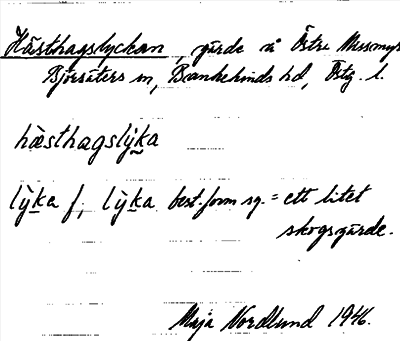 Hästhagslyckan, gärde å Östre Missmyr
Björsäters sn, Bankekinds hd, Östg. l.
hästhagslỳka
lỳka f; lỳka best. form sg. = ett litet
skogsgärde.
Maja Nordlund 1946.